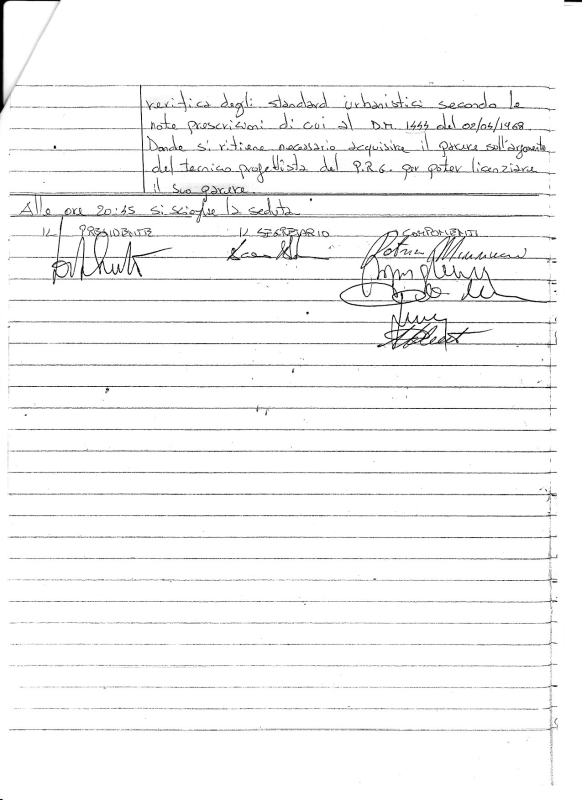 verifica degli standard urbanistici secondo le
note prescrizioni di cui al D.M. 1444 del 02/04/1968.
Donde si ritiene necessario acquisire il parere sull'argomento
del tecnico progettista del P.R.G. per poter licenziare
il suo parere.
Alle ore 20:45 si scioglie la seduta
IL PRESIDENTE IL SEGRETARIO I COMPONENTI